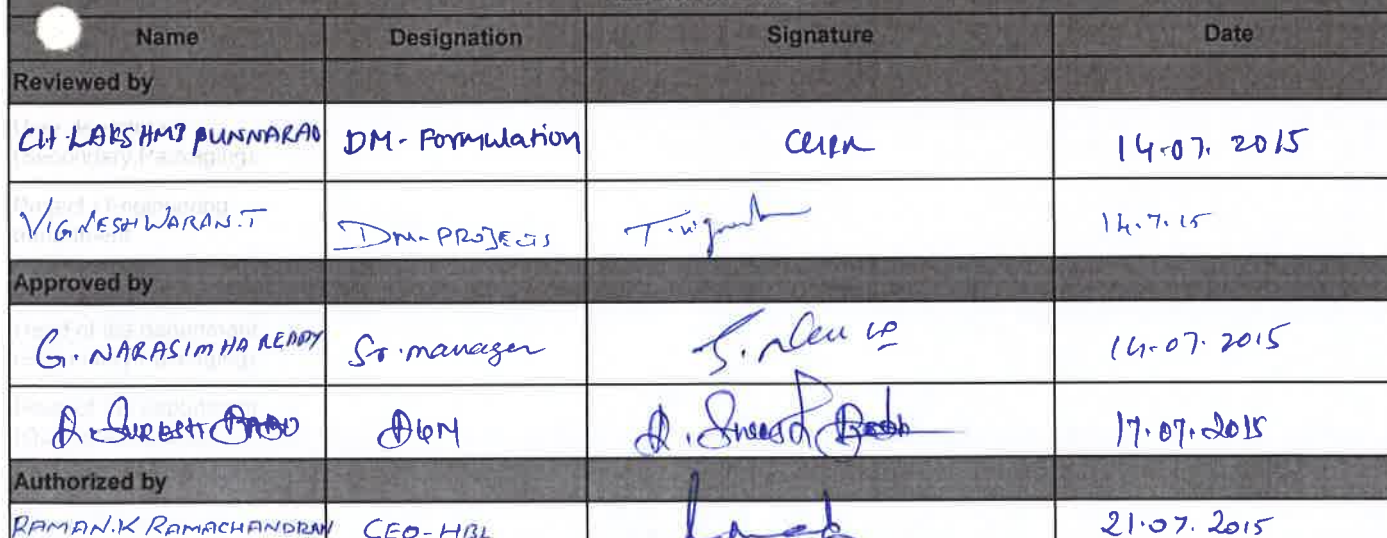 Name Designation Signature Date
Reviewed by
CH. LAKSHMI PUNNARAO DM- Formulation 14.07. 2015
VIGNESHWARAN.T DM-PROJECTS 14.7.15
Approved by
G. NARASIMHA REDDY Sr. manager 14.07. 2015
SURESH BABU DGM 17.07.2015
Authorized by
RAMAN.K RAMACHANDRAN CEO-HBL 21.07.2015